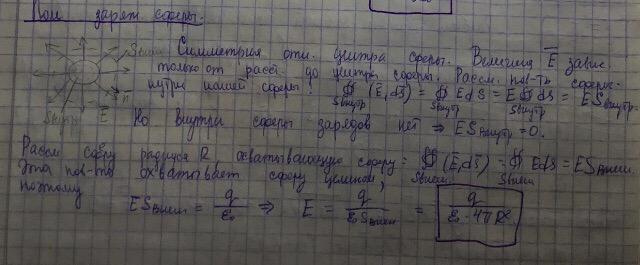 Поле заряж. сферы.
Симметрия отн. центра сферы. Величина E̅ завис.
только от расст. до центра сферы. Рассм. пов-ть сферы.
внутри нашей сферы: ∯ (E̅, ds̅) = ∯ E ds = E ∯ ds = E Sвнутр
Sвнутр Sвнутр Sвнутр
Sвнеш
n̅
E̅
Sвнутр
Но внутри сферы зарядов нет ⇒ E Sвнутр = 0.
Рассм сферу радиуса R охватывающую сферу: ∯ (E̅, ds̅) = ∯ E ds = E Sвнеш.
Sвнеш Sвнеш
Эта пов-ть охватывает сферу целиком,
поэтому
E Sвнеш = q/ε₀ ⇒ E = q/(ε₀ Sвнеш) = q/(ε₀ · 4π R²)